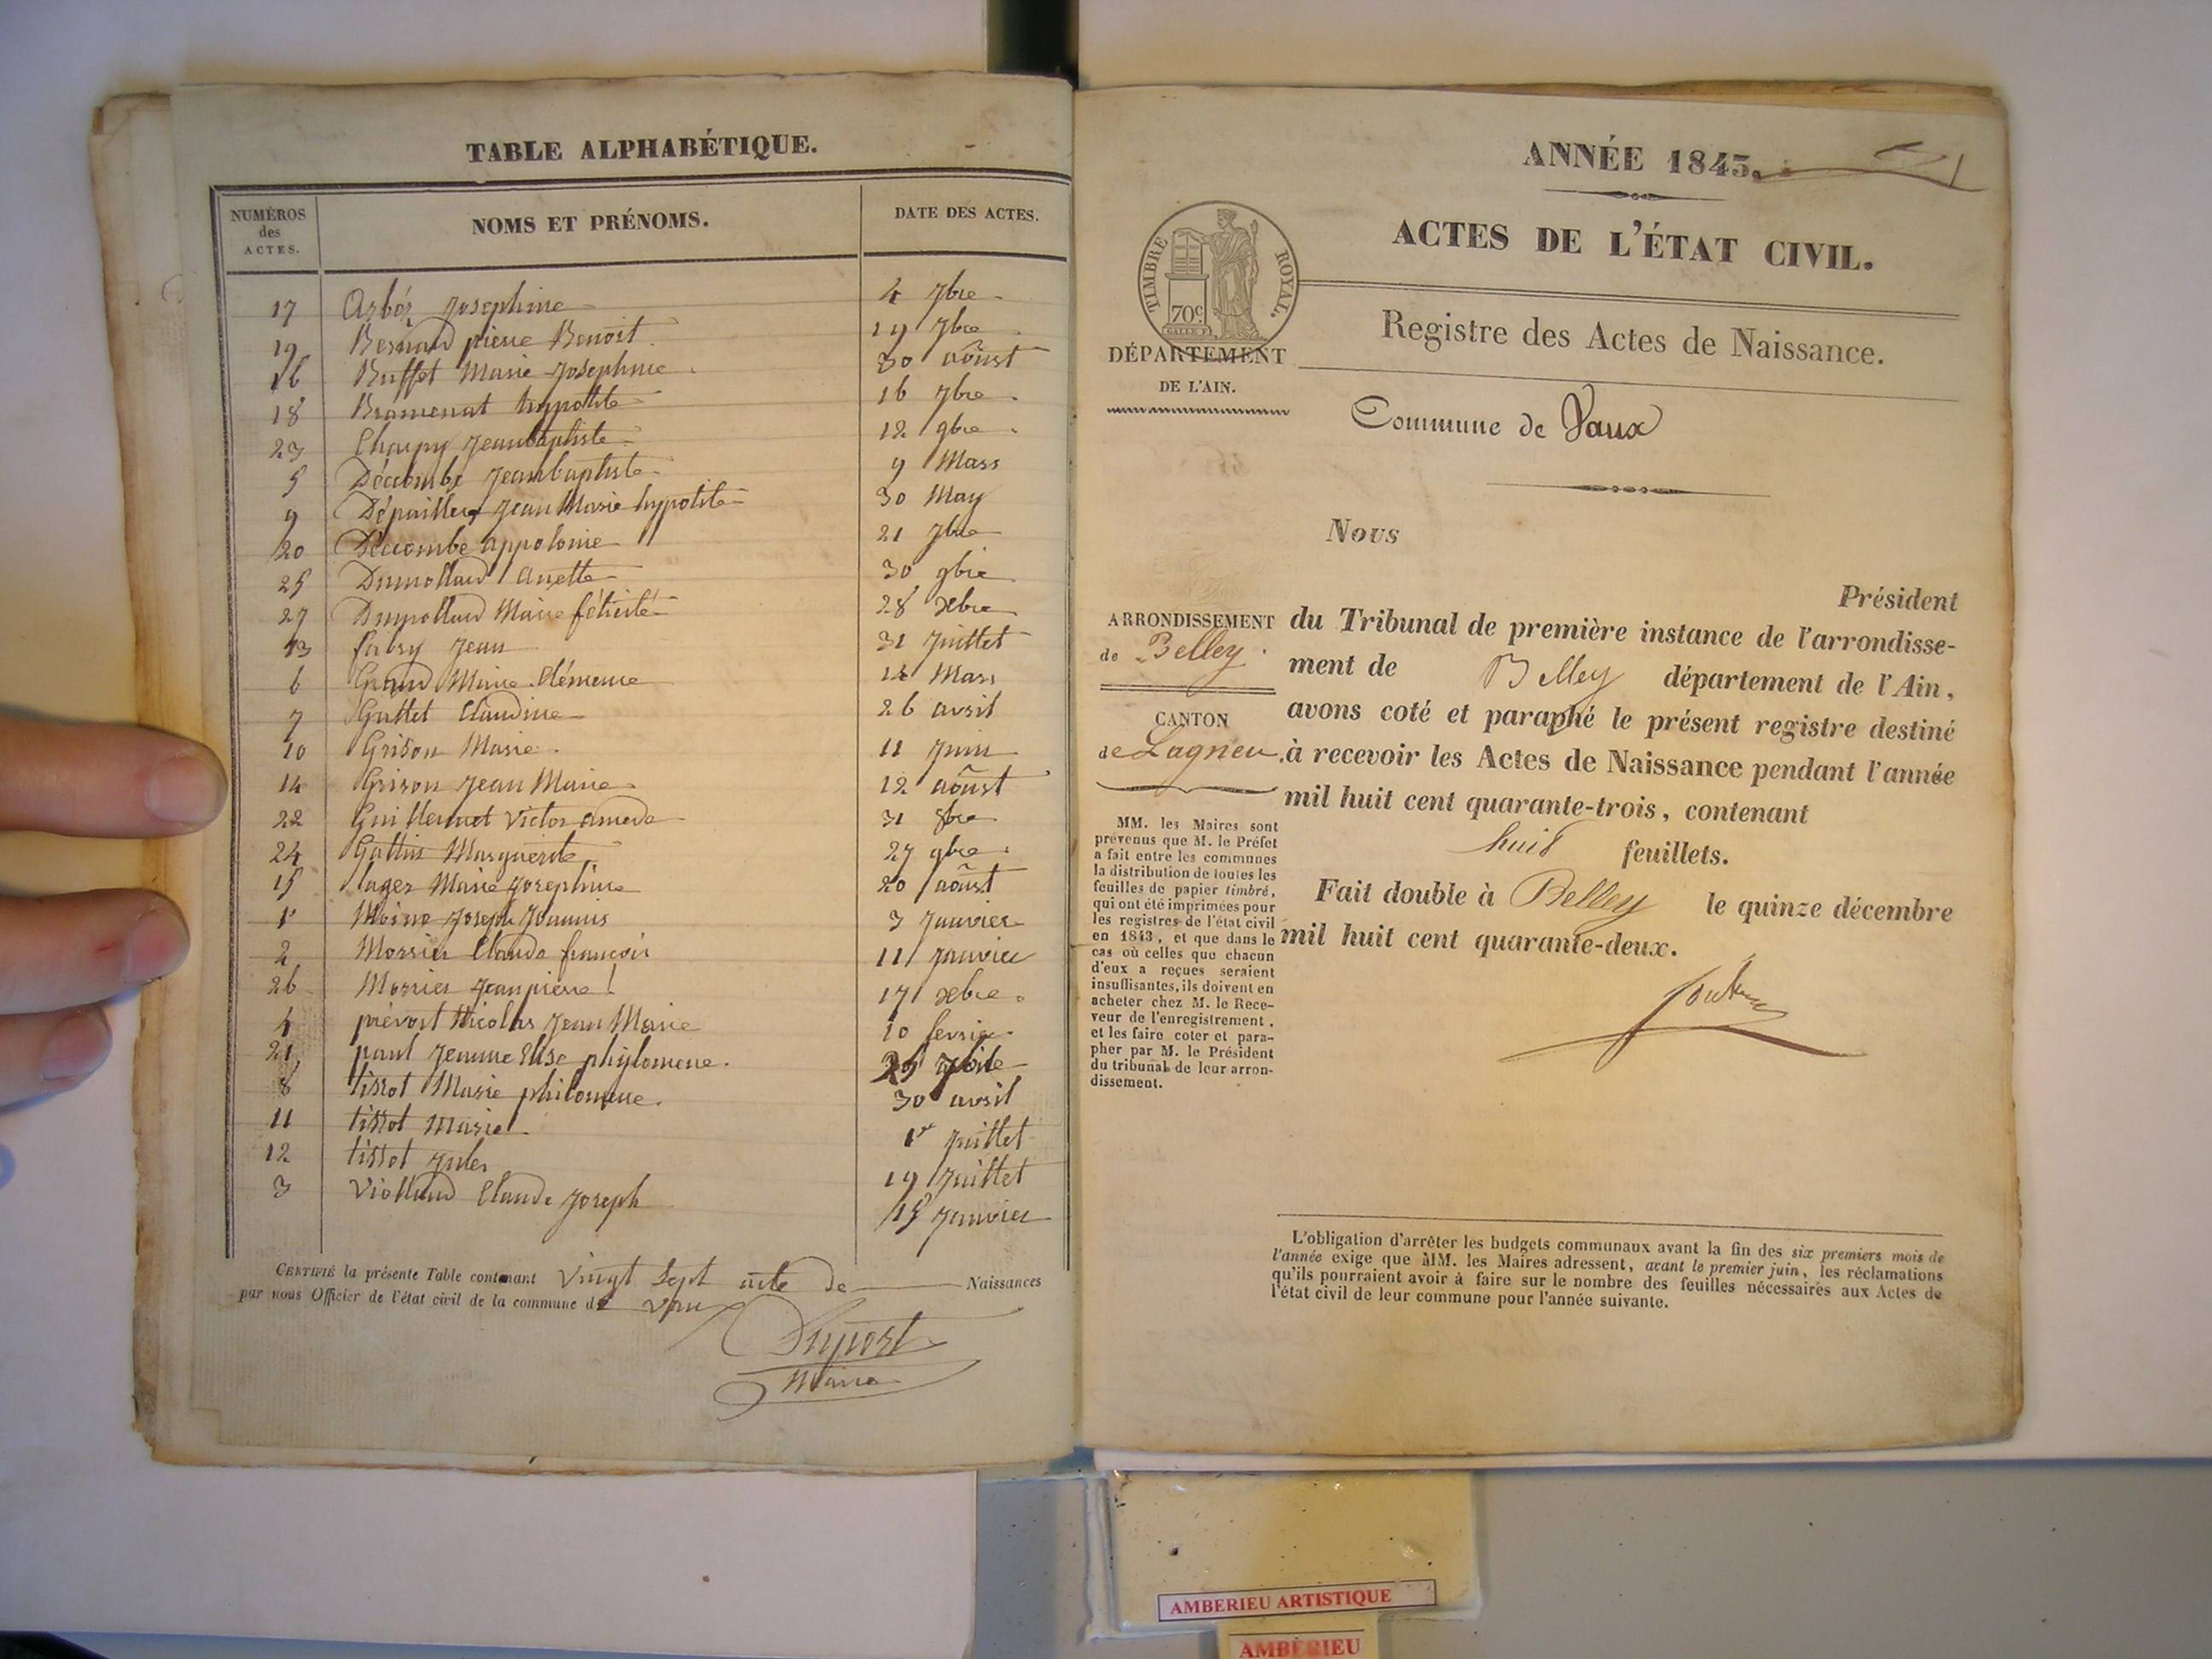 TABLE ALPHABÉTIQUE.
NUMÉROS des ACTES. NOMS ET PRÉNOMS. DATE DES ACTES.
17 Josephine 4 7bre
19 Bernard pierre Benoit 19 7bre
16 Buffet Marie Josephine 30 aôust
18 hypolite 16 7bre
23 Charpy Jeanbaptiste 12 9bre
5 Déccombe Jeanbaptiste 9 Mars
9 Jean Marie hypolite 30 May
20 Déccombe appolonie 21 7bre
25 Dumollard 30 9bre
27 Dumollard Marie félicité 28 xbre
13 fabry Jean 31 Juillet
6 Marie Clémence Mars
7 Gattet Claudine 26 avril
10 Grison Marie 11 Juin
14 Grison Jean Marie 12 aôust
22 Guillermet Victor 31 8bre
24 Marguerite 27 9bre
15 lager Marie Josephine 20 aôust
1er Joseph 3 Janvier
2 Claude françois 11 Janvier
26 Jeanpierre 17 xbre
4 prévost Nicolas Jean Marie 10 fevrier
21 paul Jeanne Elise phylomene 25
8 tissot Marie philomene 30 avril
11 tissot Marie 1er Juillet
12 tissot Jules 19 Juillet
3 Violland Claude Joseph 15 Janvier
CERTIFIÉ la présente Table contenant Vingt Sept acte de Naissances
par nous Officier de l'état civil de la commune de Vaux
Duport
Maire
ANNÉE 1843.
ACTES DE L'ÉTAT CIVIL.
TIMBRE ROYAL.
70c
DÉPARTEMENT
DE L'AIN.
Registre des Actes de Naissance.
Commune de Vaux
Nous
Président
ARRONDISSEMENT
de Belley
CANTON
de Lagneu
du Tribunal de première instance de l'arrondisse-
ment de Belley département de l'Ain,
avons coté et paraphé le présent registre destiné
à recevoir les Actes de Naissance pendant l'année
mil huit cent quarante-trois, contenant
huit feuillets.
Fait double à Belley le quinze décembre
mil huit cent quarante-deux.
MM. les Maires sont
prévenus que M. le Préfet
a fait entre les communes
la distribution de toutes les
feuilles de papier timbré,
qui ont été imprimées pour
les registres de l'état civil
en 1843, et que dans le
cas où celles que chacun
d'eux a reçues seraient
insuffisantes, ils doivent en
acheter chez M. le Rece-
veur de l'enregistrement,
et les faire coter et para-
pher par M. le Président
du tribunal de leur arron-
dissement.
L'obligation d'arrêter les budgets communaux avant la fin des six premiers mois de
l'année exige que MM. les Maires adressent, avant le premier juin, les réclamations
qu'ils pourraient avoir à faire sur le nombre des feuilles nécessaires aux Actes de
l'état civil de leur commune pour l'année suivante.
AMBERIEU ARTISTIQUE
AMBÉRIEU